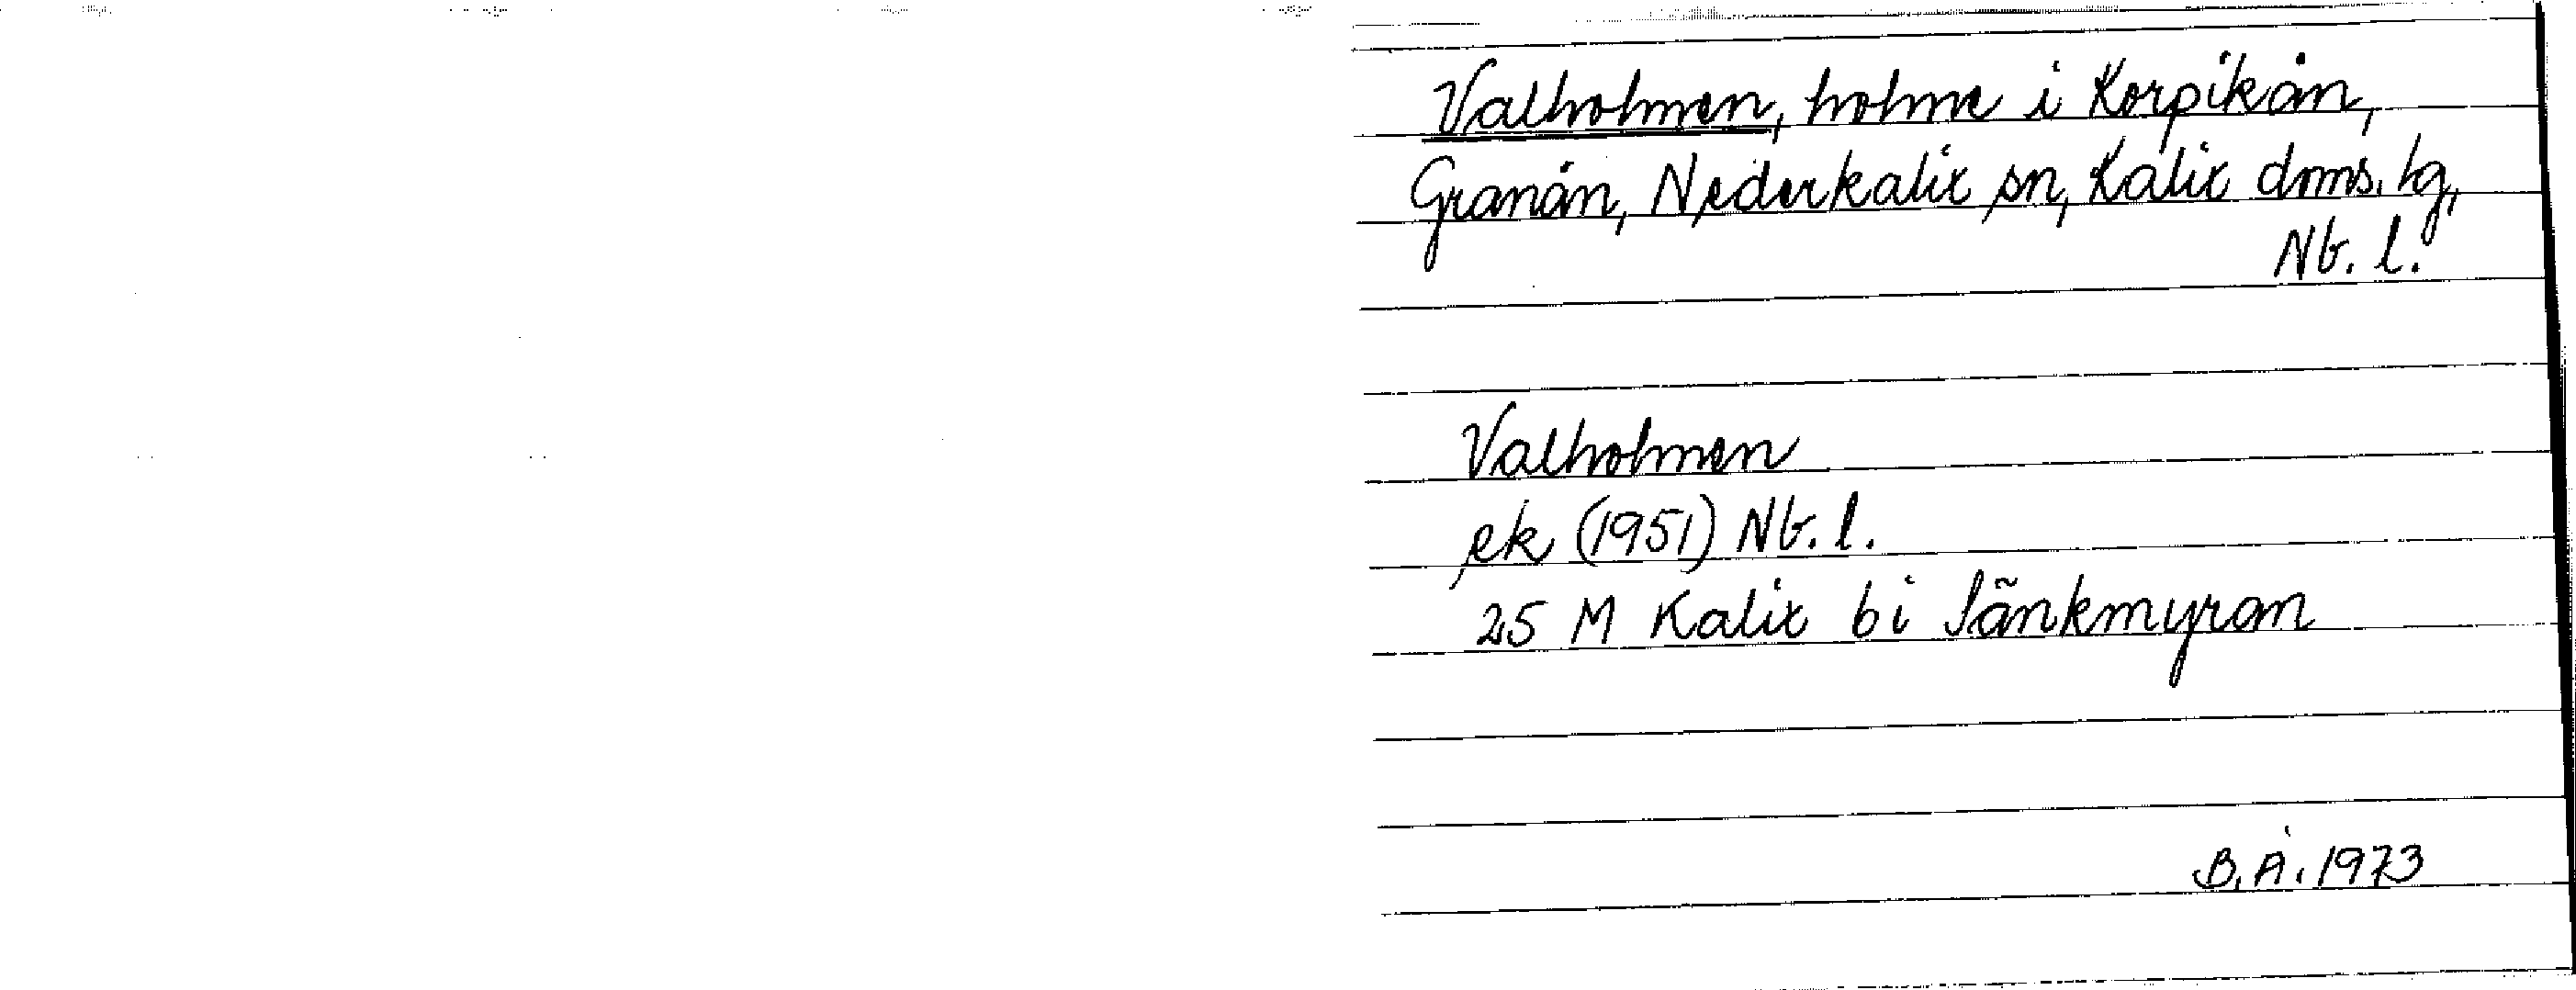 Valholmen, holme i Korpikån,
Granån, Nederkalix sn, Kalix doms. lg,
Nb. l.
Valholmen
ek (1951) Nb. l.
25 M Kalix b i Sänkmyran
B. Å. 1973